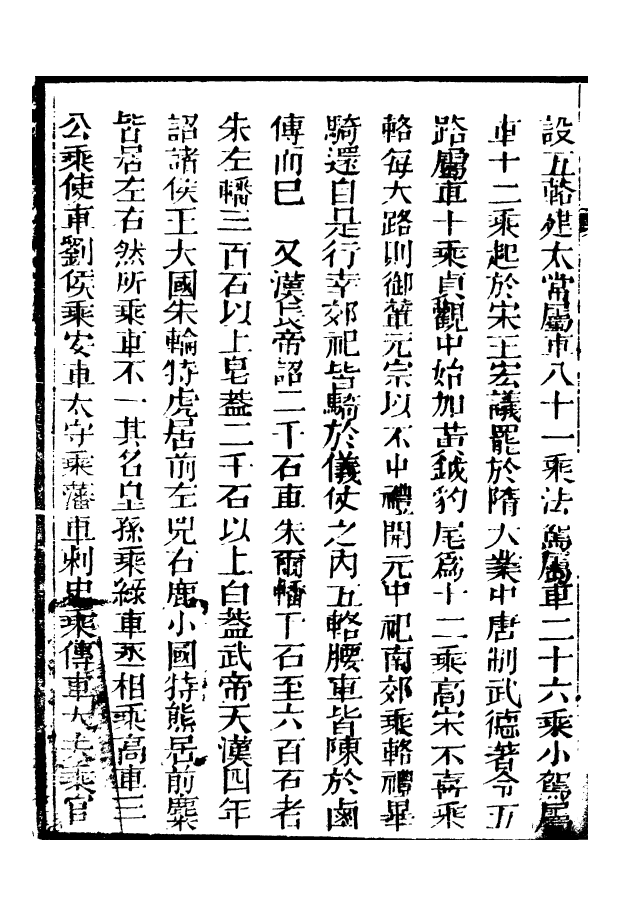 設五輅建太常屬車八十一乘法駕屬車二十六乘小駕屬
車十二乘起於宋王宏議罷於隋大業中唐制武德著令五
路屬車十乘貞觀中始加黃鉞豹尾爲十二乘高宋不喜乘
輅每大路則御輦元宗以不中禮開元中祀南郊乘輅禮畢
騎還自是行幸郊祀皆騎於儀仗之內五輅腰車皆陳於鹵
傳而巳　又漢景帝詔二千石車朱兩轓千石至六百石者
朱左轓三百石以上皂葢二千石以上白葢武帝天漢四年
詔諸侯王大國朱輪特虎居前左兕右鹿小國特熊居前麋
皆居左右然所乘車不一其名皇孫乘綠車丞相乘高車三
公乘使車劉侯乘安車太守乘藩車刺史乘傳車大夫乘官